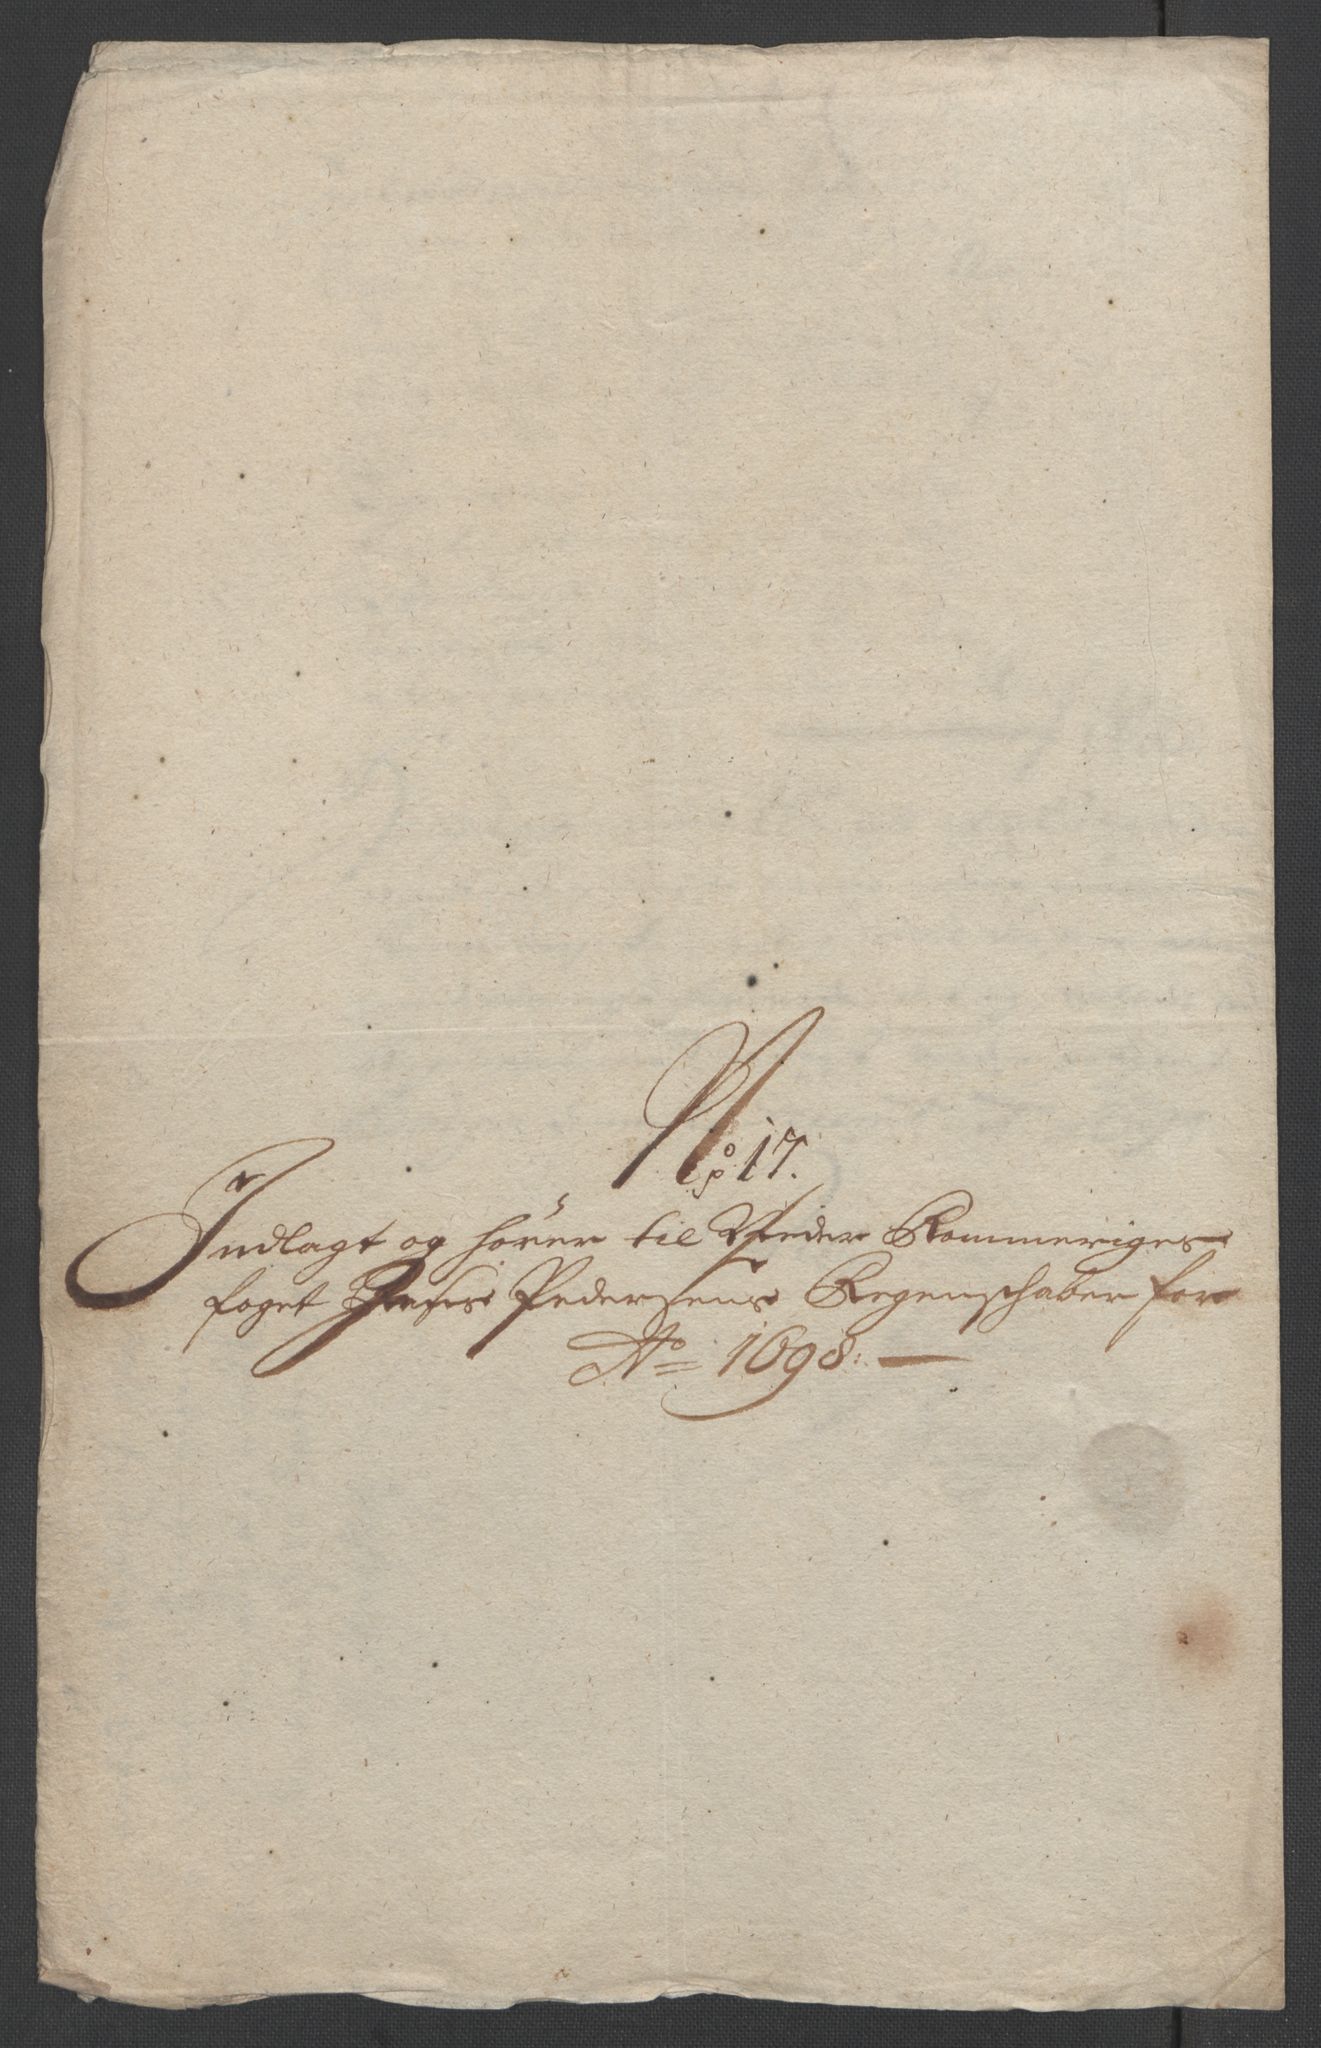 No 17.
Indlagt og hörer til Neder Rommeriges
foget Pedersens Regenschaber for
Ao 1698.